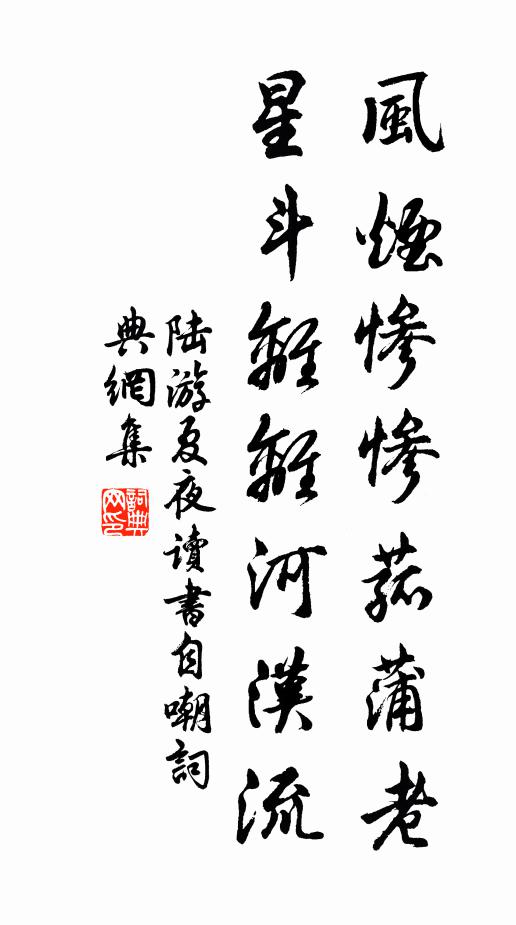 風煙慘慘菰蒲老
星斗離離河漢流
陆游夏夜讀書自嘲詞
典網集
詞典網印